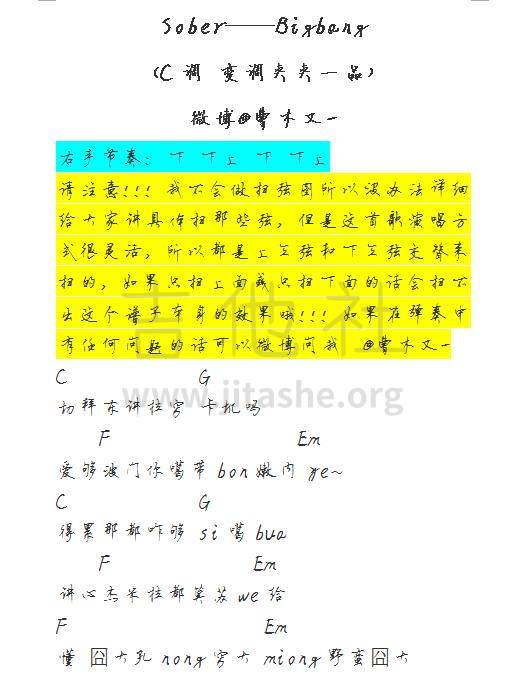 Sober——Bigbang
(C调 变调夹夹一品)
微博@曹木又一
右手节奏：下 下上 下 下上
请注意!!! 我不会做扫弦图所以没办法详细
给大家讲具体扫那些弦，但是这首歌演唱方
式很灵活，所以都是上三弦和下三弦交替来
扫的，如果只扫上面或只扫下面的话会扫不
出这个谱子本身的效果哦!!! 如果在弹奏中
有任何问题的话可以微博问我 @曹木又一
吉他社
www.jitashe.org
C G
切拜东讲拉穷 卡机吗
F Em
爱够波门你噶带 bon嫩内 ye~
C G
得累那都咋够 si 噶 bua
F Em
讲心杰米拉都莫苏 we 给
F Em
懂 囧大孔 nong 穷大 miong 野蛮囧大